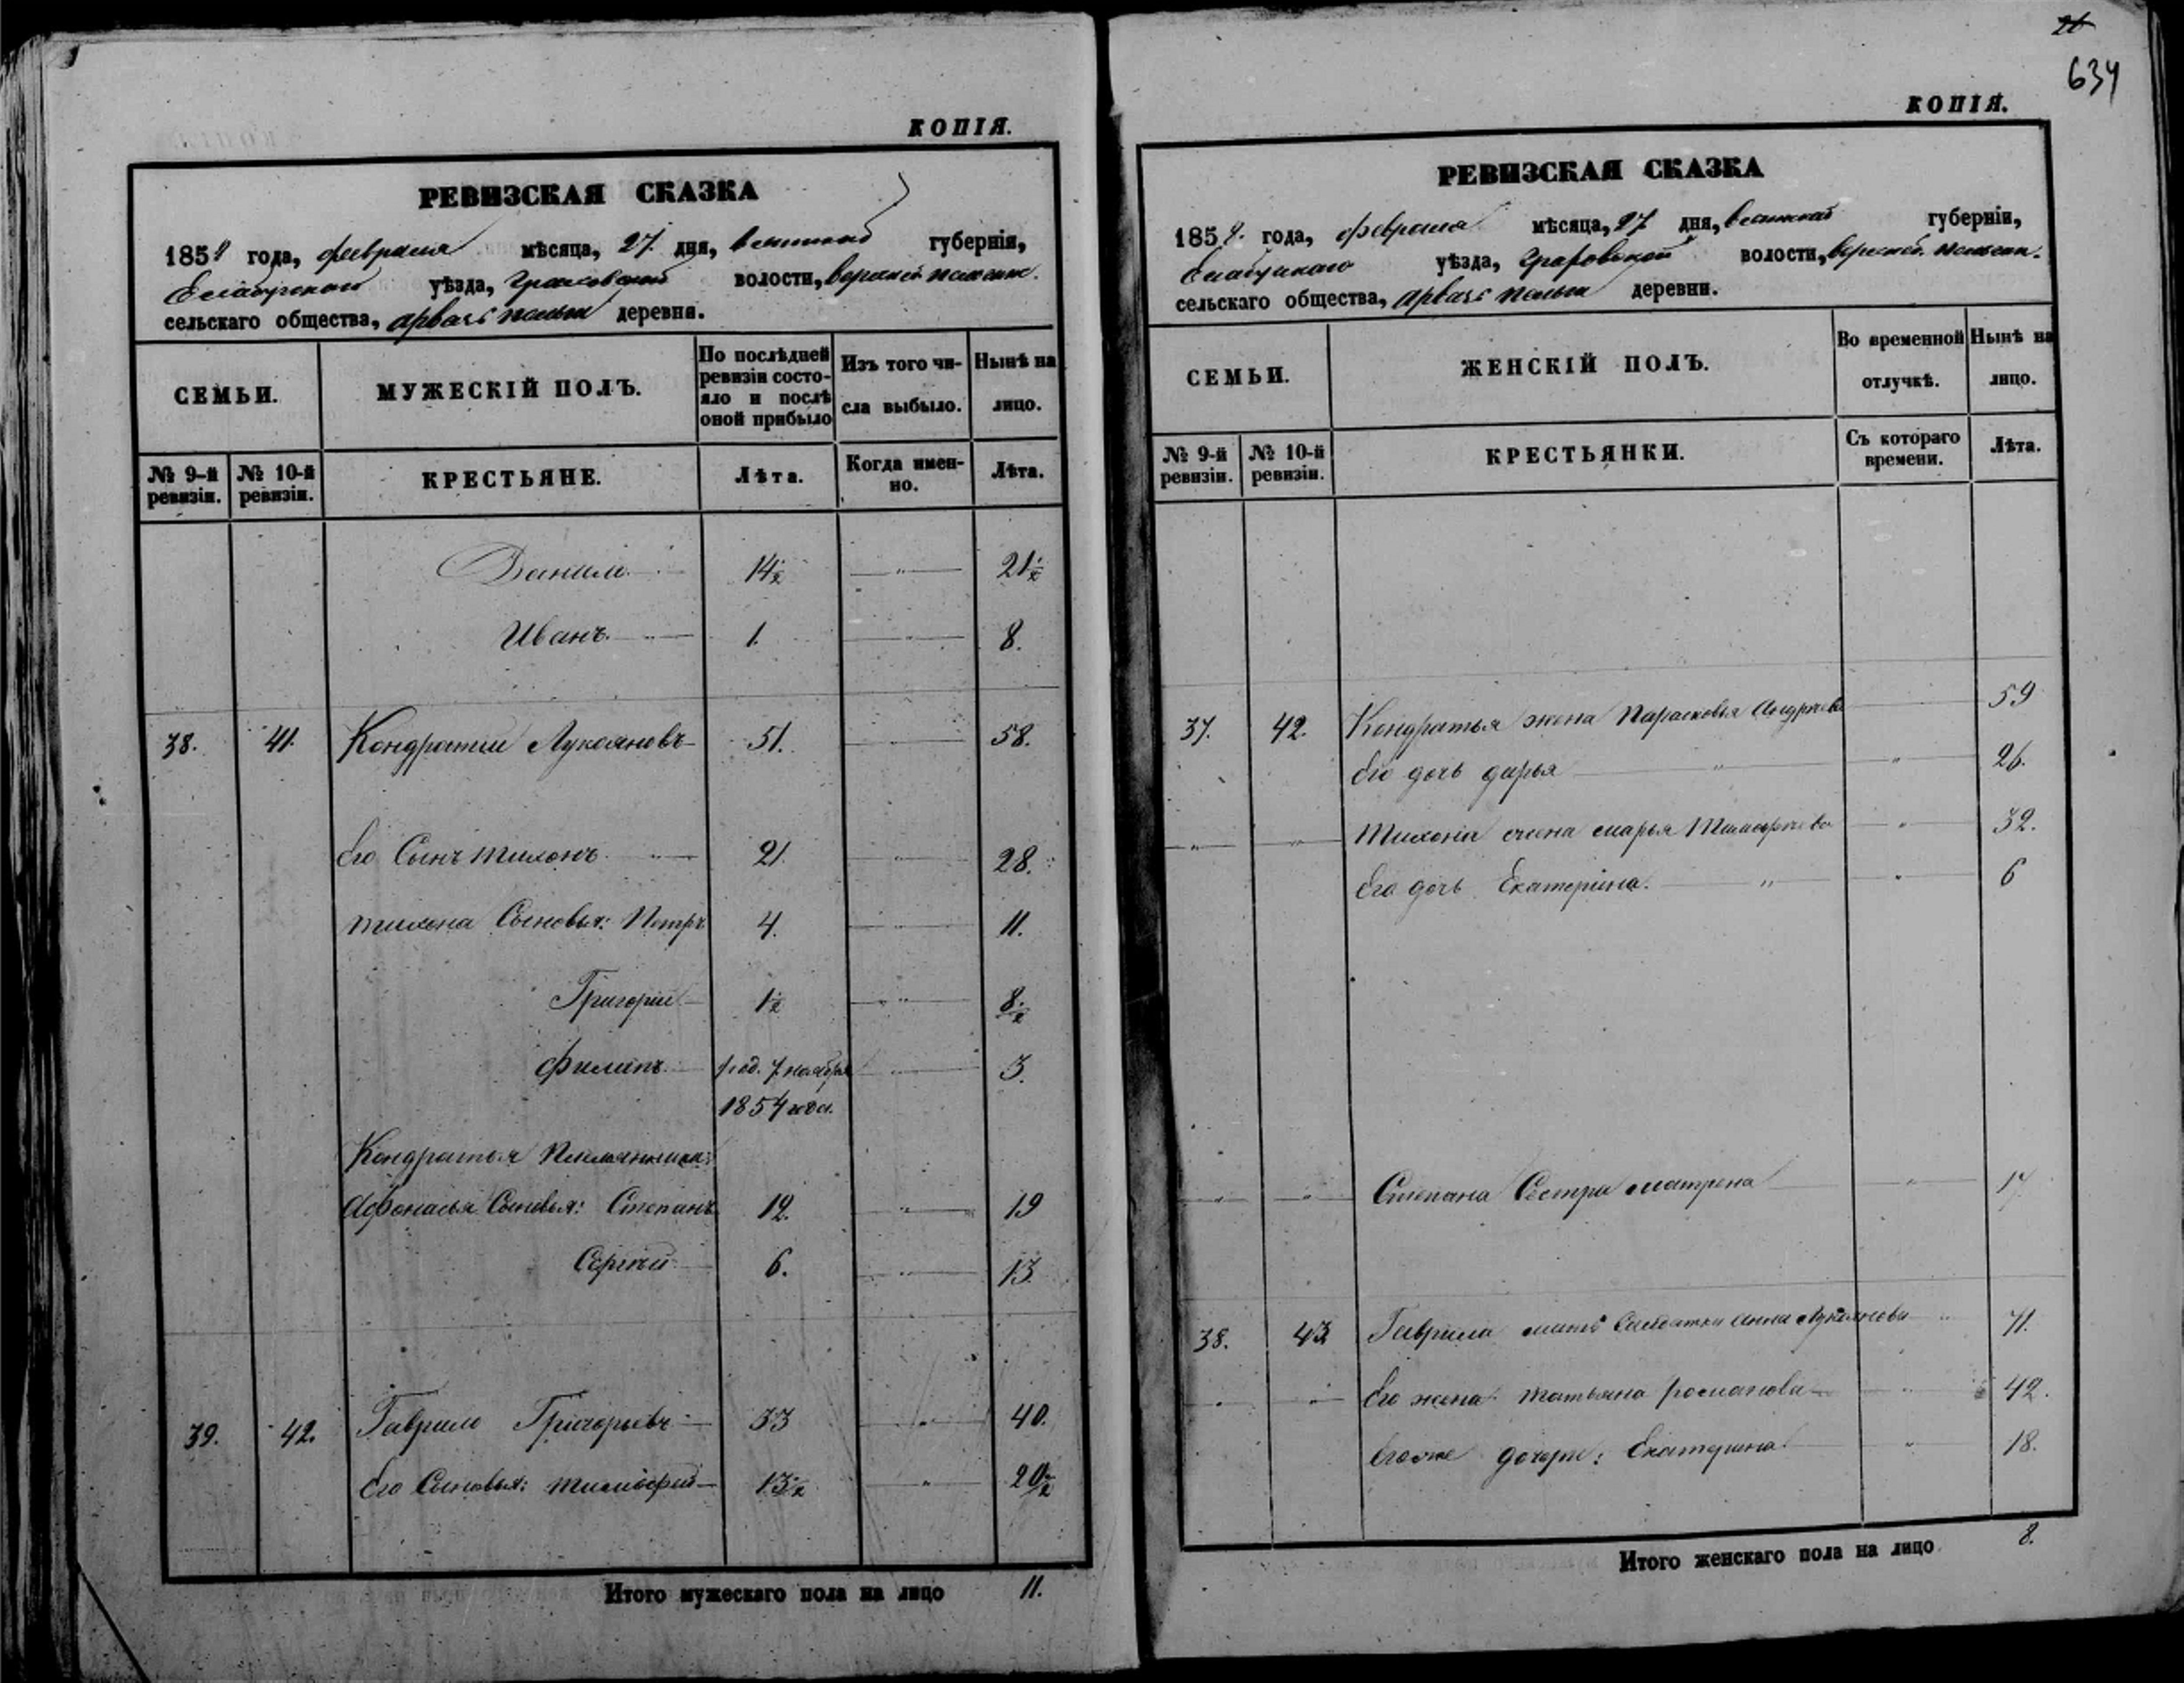 КОПІЯ.
РЕВИЗСКАЯ СКАЗКА
1858 года, февраля мѣсяца, 27 дня, вятской губерніи,
Елабужскаго уѣзда, Граховской волости, верхней
сельскаго общества, деревни.
СЕМЬИ.
МУЖЕСКІЙ ПОЛЪ.
По послѣдней ревизіи состояло и послѣ оной прибыло
Изъ того числа выбыло.
Нынѣ на лицо.
№ 9-й ревизіи.
№ 10-й ревизіи.
КРЕСТЬЯНЕ.
Лѣта.
Когда именно.
Лѣта.
Данило 14½ — " — 21½
Иванъ. — " — 1. — " — 8.
38. 41. Кондратий Лукояновъ 51. — " — 58.
Его Сынъ тихонъ. — " — 21. — " — 28.
тихона Сыновья: Петръ 4. — " — 11.
Григорий 1½ — " — 8½
Филипъ род. 7 ноября — " — 3.
1854 года.
Кондратья Племянники:
Афонасья Сыновья: Степанъ 12. — " — 19
Сергѣй 6. — " — 13.
39. 42. Гаврило Григорьевъ 33 — " — 40.
Его Сыновья: тимофей 13½ — " — 20½
Итого мужескаго пола на лицо 11.
26
634
КОПІЯ.
РЕВИЗСКАЯ СКАЗКА
1858 года, февраля мѣсяца, 27 дня, вятской губерніи,
Елабужскаго уѣзда, Граховской волости, верхней
сельскаго общества, деревни.
СЕМЬИ.
ЖЕНСКІЙ ПОЛЪ.
Во временной отлучкѣ.
Нынѣ на лицо.
№ 9-й ревизіи.
№ 10-й ревизіи.
КРЕСТЬЯНКИ.
Съ котораго времени.
Лѣта.
37. 42. Кондратья жена Парасковья Андреева 59
Его дочь дарья — " — 26.
— " — — " — Тихона жена марья Тимофеева — " — 32.
Его дочь Екатерина. — " — 6
— " — — " — Степана Сестра матрена — " — 17
38. 43 Гаврила мать Солдатка Анна Лукоянова " 71.
Его жена татьяна романова 42.
Егоже дочери: Екатерина " 18.
Итого женскаго пола на лицо 8.